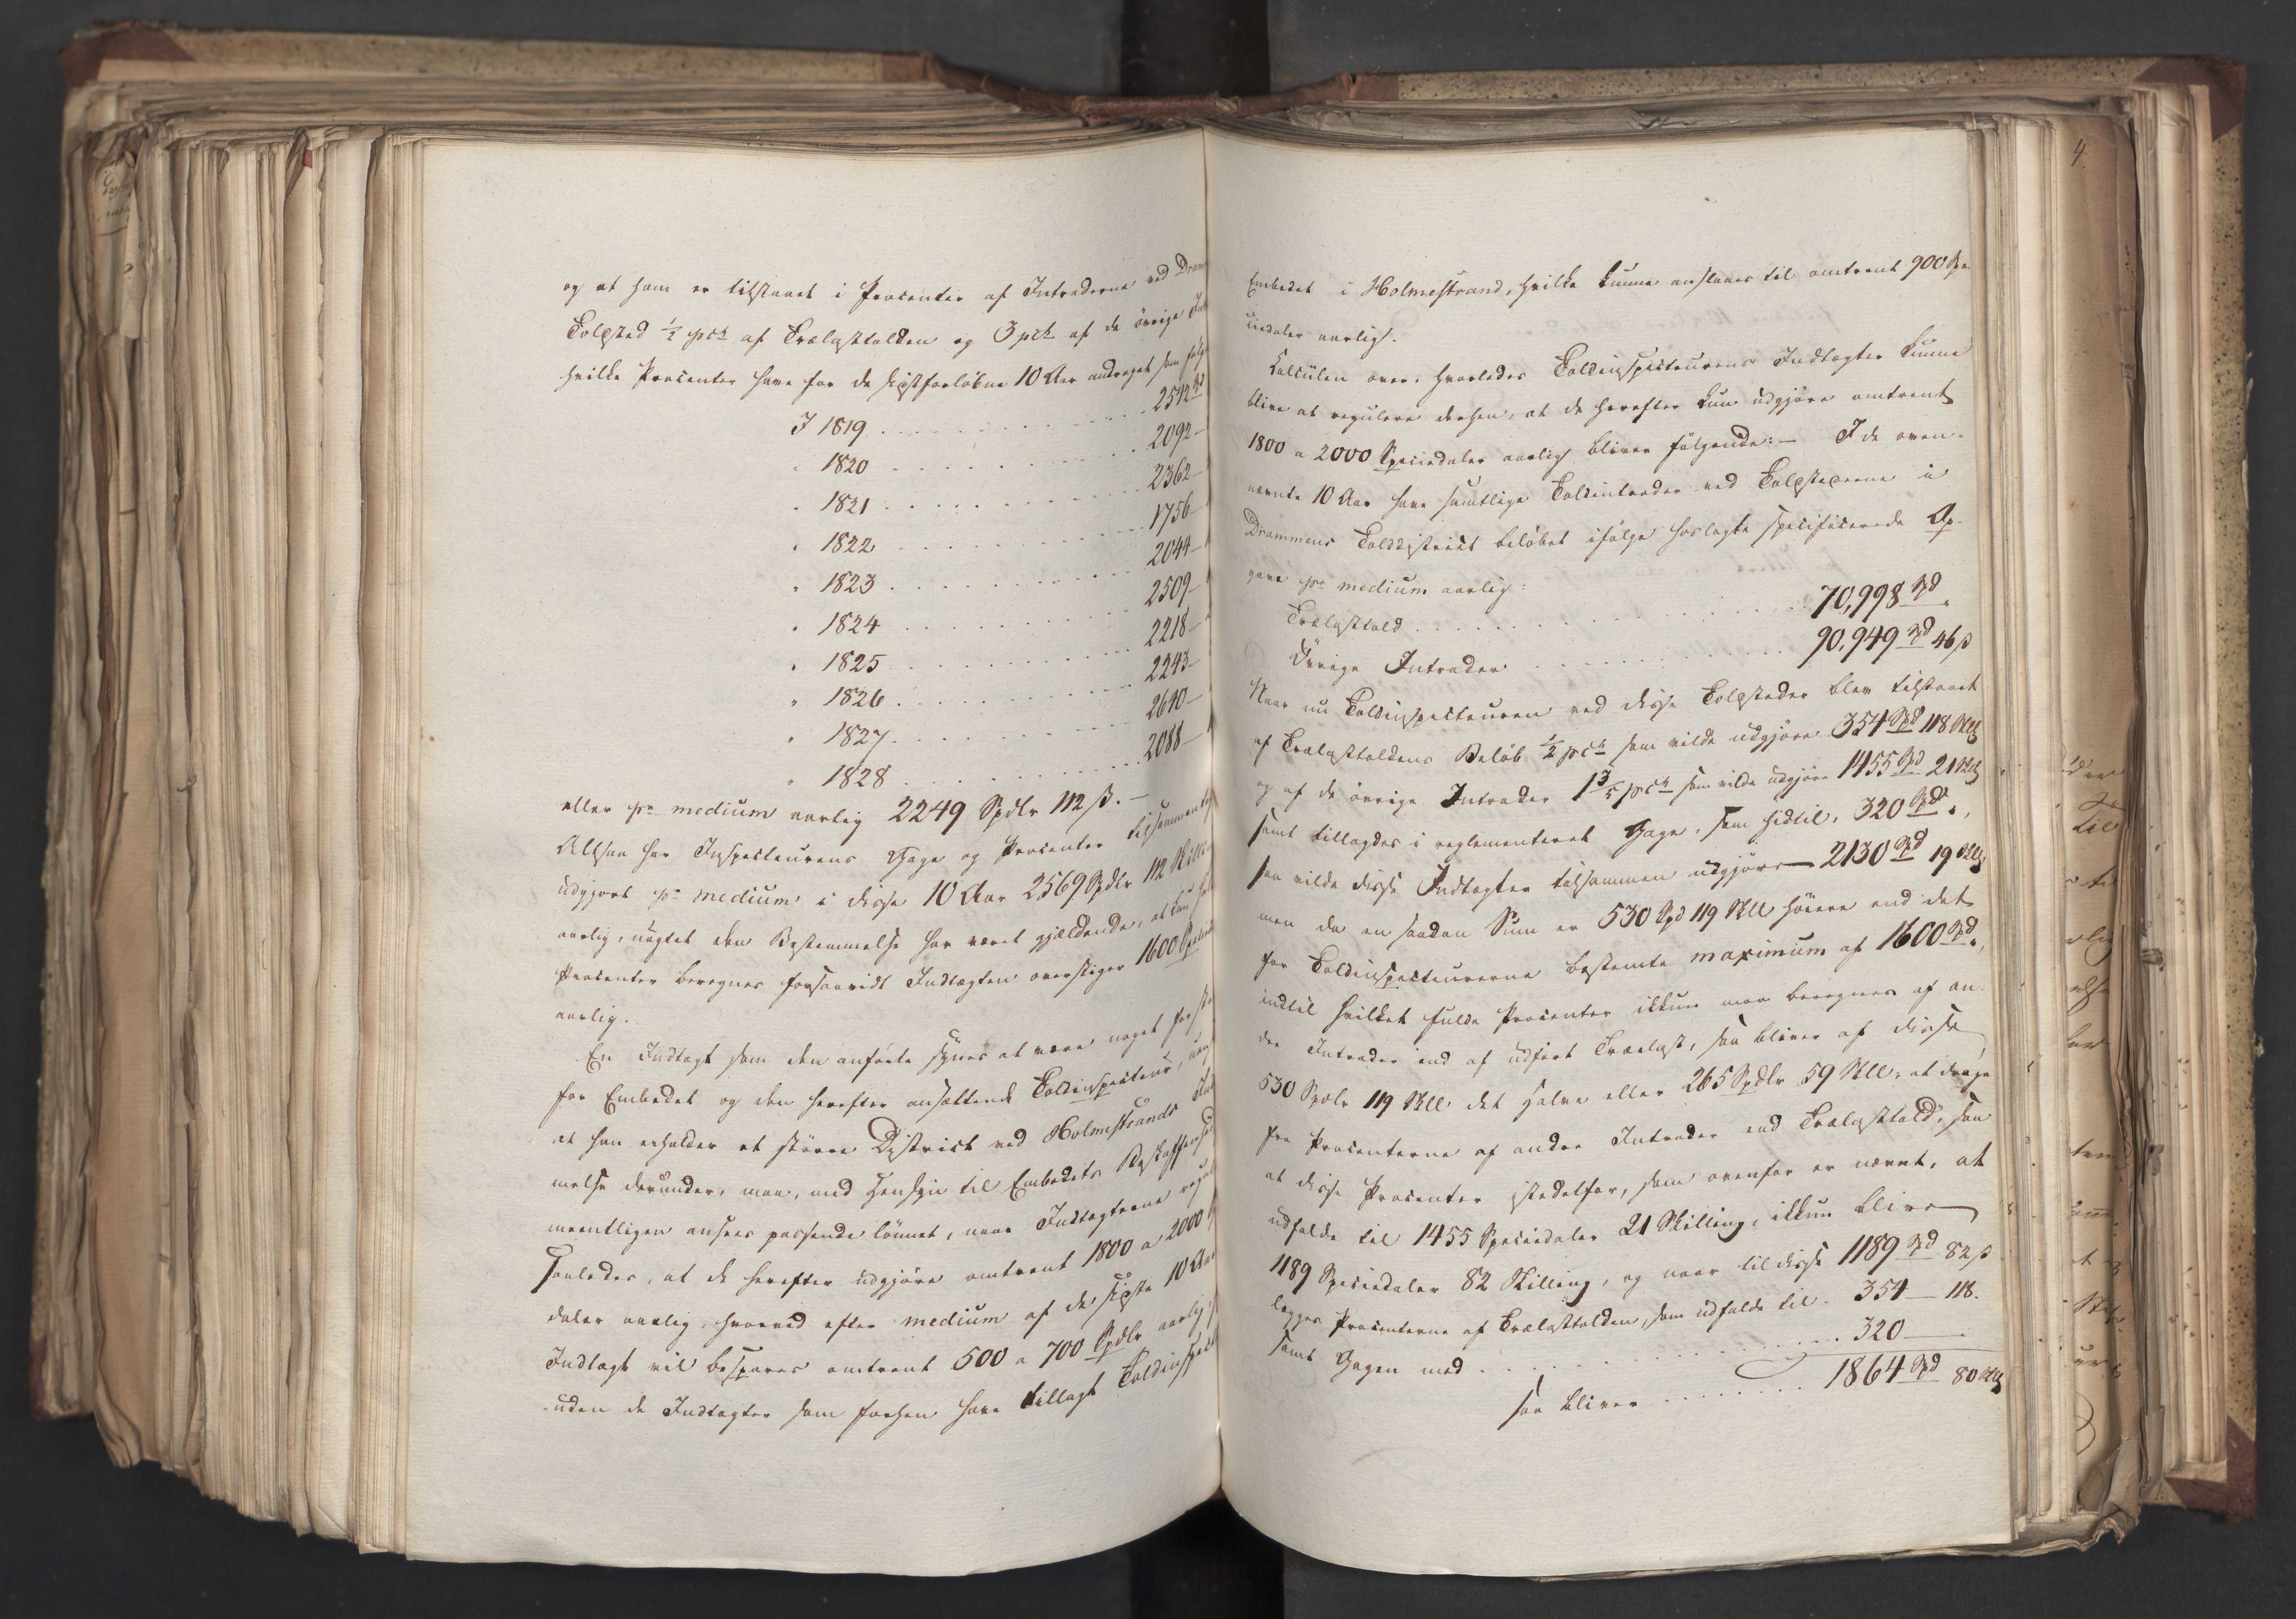 og at ham er tilstaaet i Procenter af Intraderne ved Dram
Toldsted ½ pct af Trælasttolden og 3 pct af de övrige
hvilke Procenter have for de sidstforløbne 10 Aar andraget som følge
I 1819 . . . . . . . . 2542 Spd
" 1820 . . . . . . . . 2092 —
" 1821 . . . . . . . . 2362 —
" 1822 . . . . . . . . 1756 —
" 1823 . . . . . . . . 2044 —
" 1824 . . . . . . . . 2509 —
" 1825 . . . . . . . . 2218 —
" 1826 . . . . . . . . 2243 —
" 1827 . . . . . . . . 2640 —
" 1828 . . . . . . . . 2088 —
eller pr medium aarlig 2249 Spdlr 112 ß. —
Altsaa har Inspecteurens Gage og Procenter tilsammen
udgjort pr medium i disse 10 Aar 2569 Spdlr 112 Skilling
aarlig, uagtet den Bestemmelse har været gjældende, at kun
Procenter beregnes forsaavidt Indtægten overstiger 1600
aarlig.
En Indtægt som den anførte synes at være noget for stor
for Embedet og den herefter ansættende Toldinspecteur,
at han erholder et större District ved Holmestrands
melse derunder, maa, med Hensyn til Embedets Beskaffenhed
meentligen ansees passende lönnet, naar Indtægterne
saaledes, at de herefter udgjöre omtrent 1800 a 2000
daler aarlig, hvorved efter medium af de sidste 10 Aar
Indtægt vil besparес omtrent 500 a 700 Spdlr aarlig,
uden de Indtægter som forhen have tillagt
Embedet i Holmestrand, hvilke kunne anslaaes til omtrent 900 Spe-
ciedaler aarligt.
Calculen over, hvorledes Toldinspecteurens Indtægter kunne
blive at regulere derhen, at de herefter kun udgjöre omtrent
1800 a 2000 Speciedaler aarligt bliver fölgende: — I de oven-
nævnte 10 Aar have samtlige Toldintrader ved Toldstederne i
Drammens Tolddistrict beløbet ifølge hoslagte specificerede Op-
gave pr medium aarlig:
Trælasttold . . . . . . . . 70,998 Spd "
Övrige Intrader . . . . . . . . 90,949 Spd 46 ß
Naar nu Toldinspecteuren ved disse Toldsteder blev tilstaaet
af Trælasttoldens Beløb ½ pct som vilde udgjöre 354 Spd 118 Skll
og af de övrige Intrader 1 3/5 pct som vilde udgjöre 1455 Spd 21 Skll
samt tillagdes i reglementeret Gage, som hidtil, 320 Spd ",
saa vilde disse Indtægter tilsammen udgjöre — 2130 Spd 19 Skll;
men da en saadan Sum er 530 Spd 119 Skll høiere end det
for Toldinspecteurerne bestemte maximum af 1600 Spd,
indtil hvilket fulde Procenter ikkun maa beregnes af an-
dre Intrader end af udfört Trælast, saa bliver af disse
530 Spdlr 119 Skll det Halve eller 265 Spdlr 59 Skll: at drage
fra Procenterne af andre Intrader end Trælasttold, saa
at disse Procenter istedetfor, som ovenfor er nævnt, at
udfalde til 1455 Speciedaler 21 Skilling, ikkun blive
1189 Speciedaler 82 Skilling, og naar til disse 1189 Spd 82 ß
lægges Procenterne af Trælasttolden, som udfalde til . 354 — 118.
samt Gagen med . . . . . . . . 320 —
saa bliver . . . . . . . . 1864 Spd 80 Skll
4.